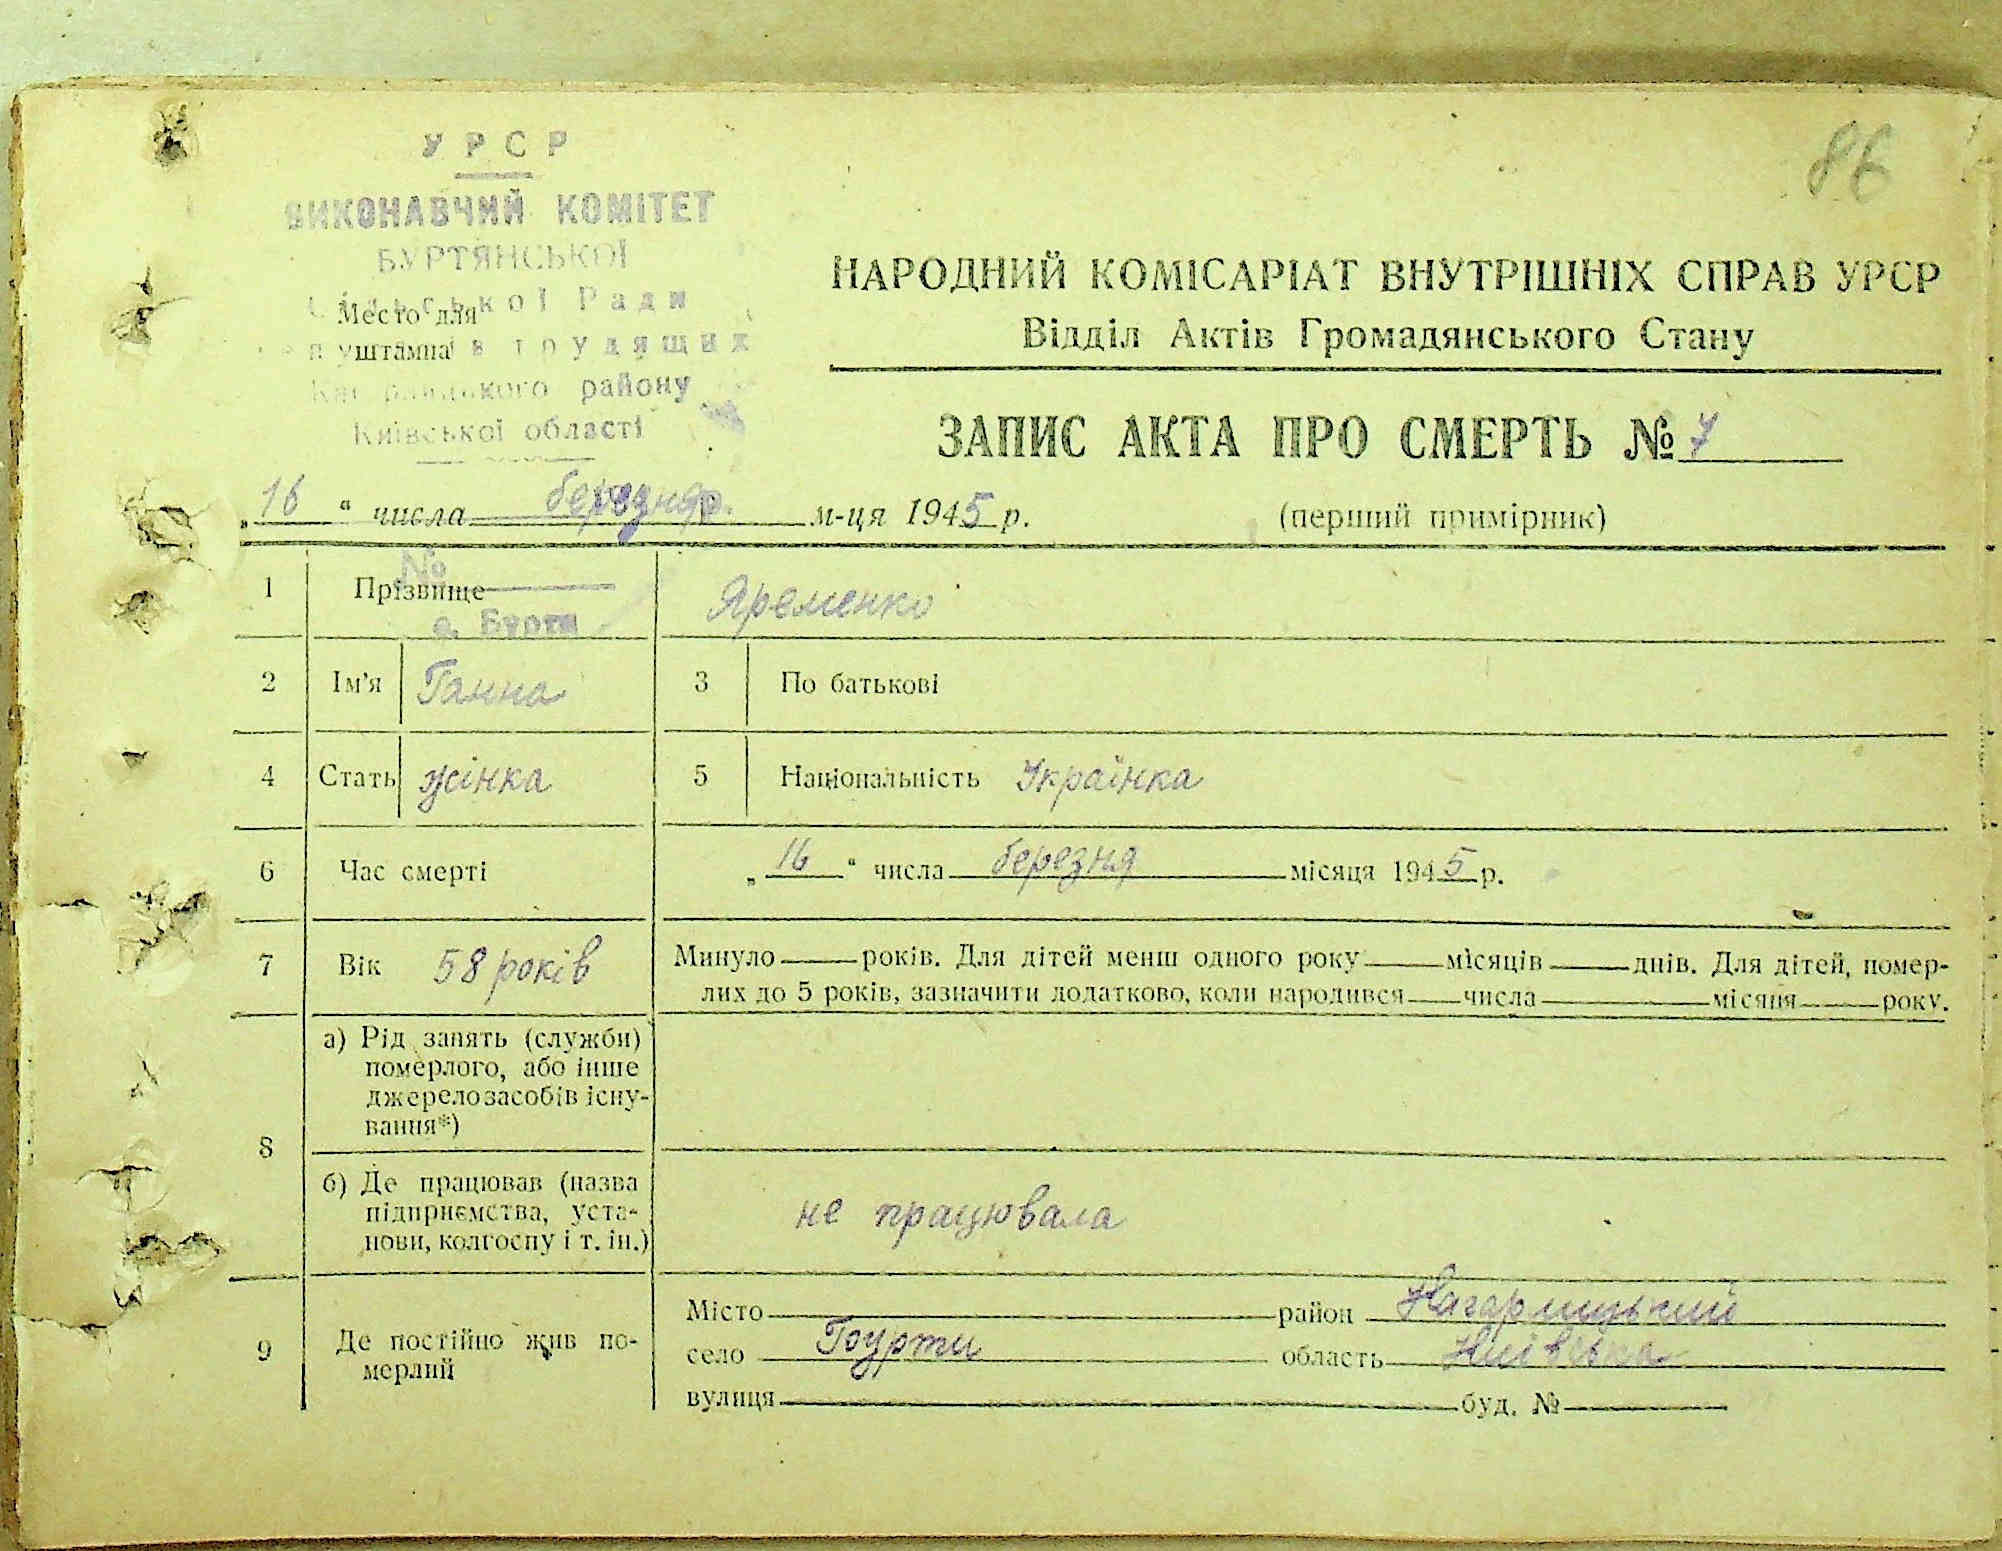 86
УРСР
ВИКОНАВЧИЙ КОМІТЕТ
БУРТЯНСЬКОЇ
Сільської Ради
Место для
штампа
трудящих
району
Київської області
НАРОДНИЙ КОМІСАРІАТ ВНУТРІШНІХ СПРАВ УРСР
Відділ Актів Громадянського Стану
ЗАПИС АКТА ПРО СМЕРТЬ № 7
„16“ числа березня м-ця 1945 р. (перший примірник)
№
с. Бурти
1 Прізвище Яременко
2 Ім'я Ганна 3 По батькові
4 Стать жінка 5 Національність Українка
6 Час смерті „16“ числа березня місяця 1945 р.
7 Вік 58 років Минуло років. Для дітей менш одного року місяців днів. Для дітей, помер-
лих до 5 років, зазначити додатково, коли народився числа місяця року.
8 а) Рід занять (служби)
померлого, або інше
джерело засобів існу-
вання*)
б) Де працював (назва
підприємства, уста-
нови, колгоспу і т. ін.) не працювала
9 Де постійно жив по-
мерлий
Місто район Кагарлицький
село Бурти область Київська
вулиця буд. №